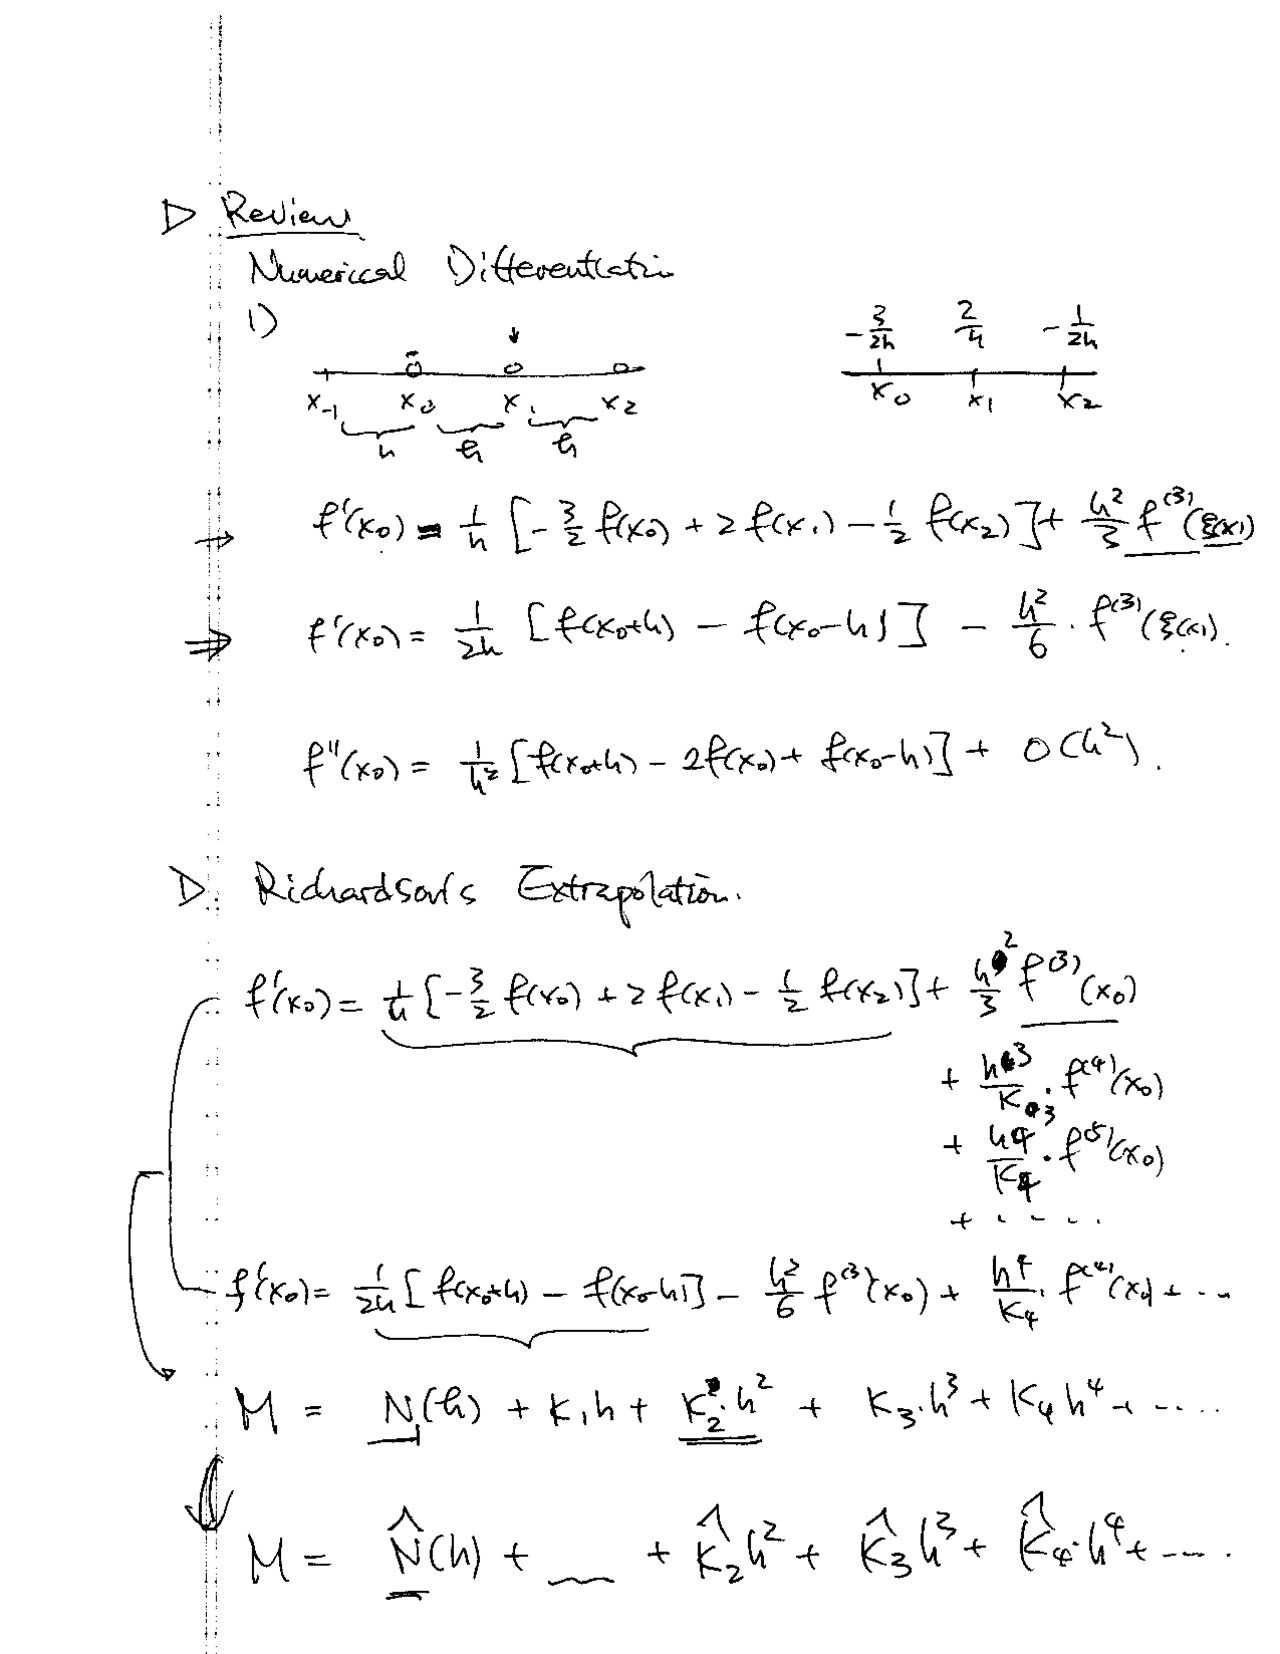 ▷ Review
Numerical Differentiatin
1)
-3/2h 2/h -1/2h
x₋₁ x₀ x₁ x₂ x₀ x₁ x₂
h h h
→ f'(x₀) = 1/h [-3/2 f(x₀) + 2 f(x₁) - 1/2 f(x₂)] + h²/3 f⁽³⁾(ξ(x))
⇒ f'(x₀) = 1/2h [f(x₀+h) - f(x₀-h)] - h²/6 · f⁽³⁾(ξ(x)).
f''(x₀) = 1/h² [f(x₀+h) - 2f(x₀) + f(x₀-h)] + O(h²).
▷ Richardson's Extrapolation.
f'(x₀) = 1/h [-3/2 f(x₀) + 2 f(x₁) - 1/2 f(x₂)] + h²/3 f⁽³⁾(x₀)
+ h³/K₃ · f⁽⁴⁾(x₀)
+ h⁴/K₄ · f⁽⁵⁾(x₀)
+ · · · ·
f'(x₀) = 1/2h [f(x₀+h) - f(x₀-h)] - h²/6 f⁽³⁾(x₀) + h⁴/K₄ · f⁽⁴⁾(x₀) + ...
M = N₁(h) + K₁h + K₂·h² + K₃·h³ + K₄h⁴ + ....
M = N̂(h) + __ + K̂₂h² + K̂₃h³ + K̂₄·h⁴ + ....